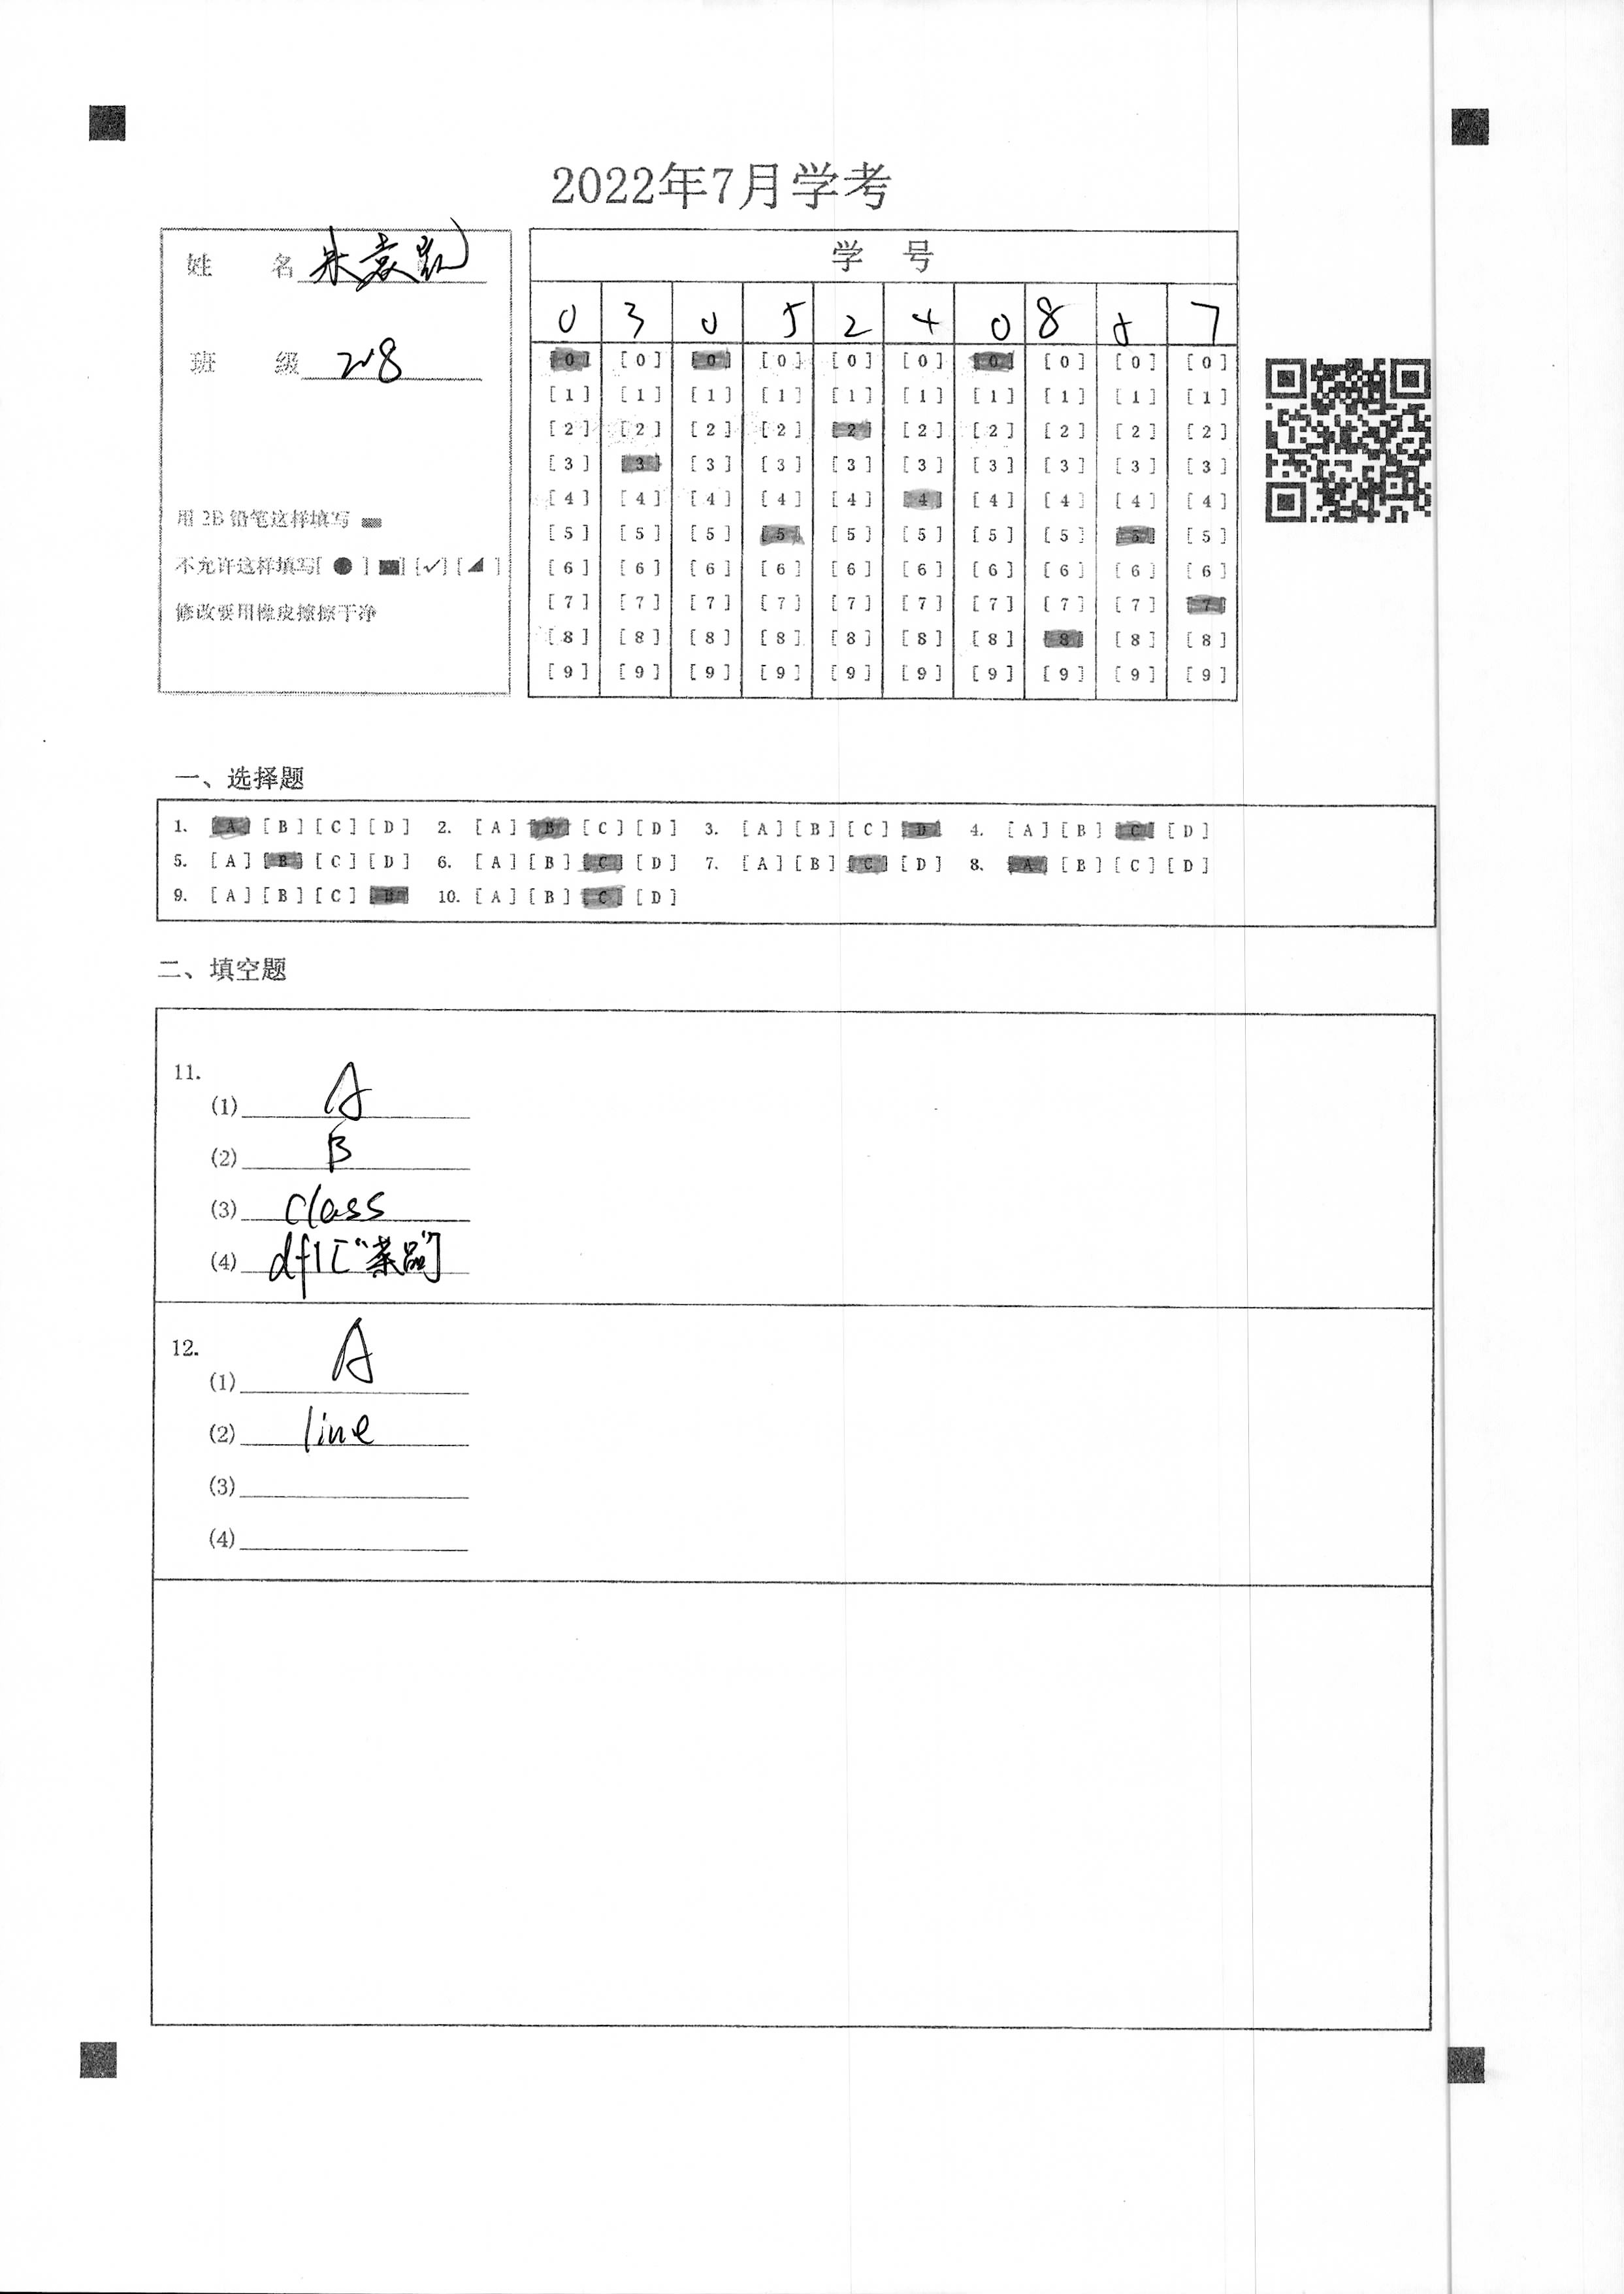 2022年7月学考
姓 名 朱袁凯
班 级 208
用 2B 铅笔这样填写
不允许这样填写[ ● ] [✓] [ ]
修改要用橡皮擦擦干净
学 号
0 3 0 5 2 4 0 8 5 7
[0] [0] [0] [0] [0] [0] [0] [0] [0] [0]
[1] [1] [1] [1] [1] [1] [1] [1] [1] [1]
[2] [2] [2] [2] [2] [2] [2] [2] [2] [2]
[3] [3] [3] [3] [3] [3] [3] [3] [3] [3]
[4] [4] [4] [4] [4] [4] [4] [4] [4] [4]
[5] [5] [5] [5] [5] [5] [5] [5] [5] [5]
[6] [6] [6] [6] [6] [6] [6] [6] [6] [6]
[7] [7] [7] [7] [7] [7] [7] [7] [7] [7]
[8] [8] [8] [8] [8] [8] [8] [8] [8] [8]
[9] [9] [9] [9] [9] [9] [9] [9] [9] [9]
一、选择题
1. [A] [B] [C] [D] 2. [A] [B] [C] [D] 3. [A] [B] [C] [D] 4. [A] [B] [C] [D]
5. [A] [B] [C] [D] 6. [A] [B] [C] [D] 7. [A] [B] [C] [D] 8. [A] [B] [C] [D]
9. [A] [B] [C] [D] 10. [A] [B] [C] [D]
二、填空题
11.
(1) A
(2) B
(3) class
(4) df1["菜品"]
12.
(1) A
(2) line
(3)
(4)